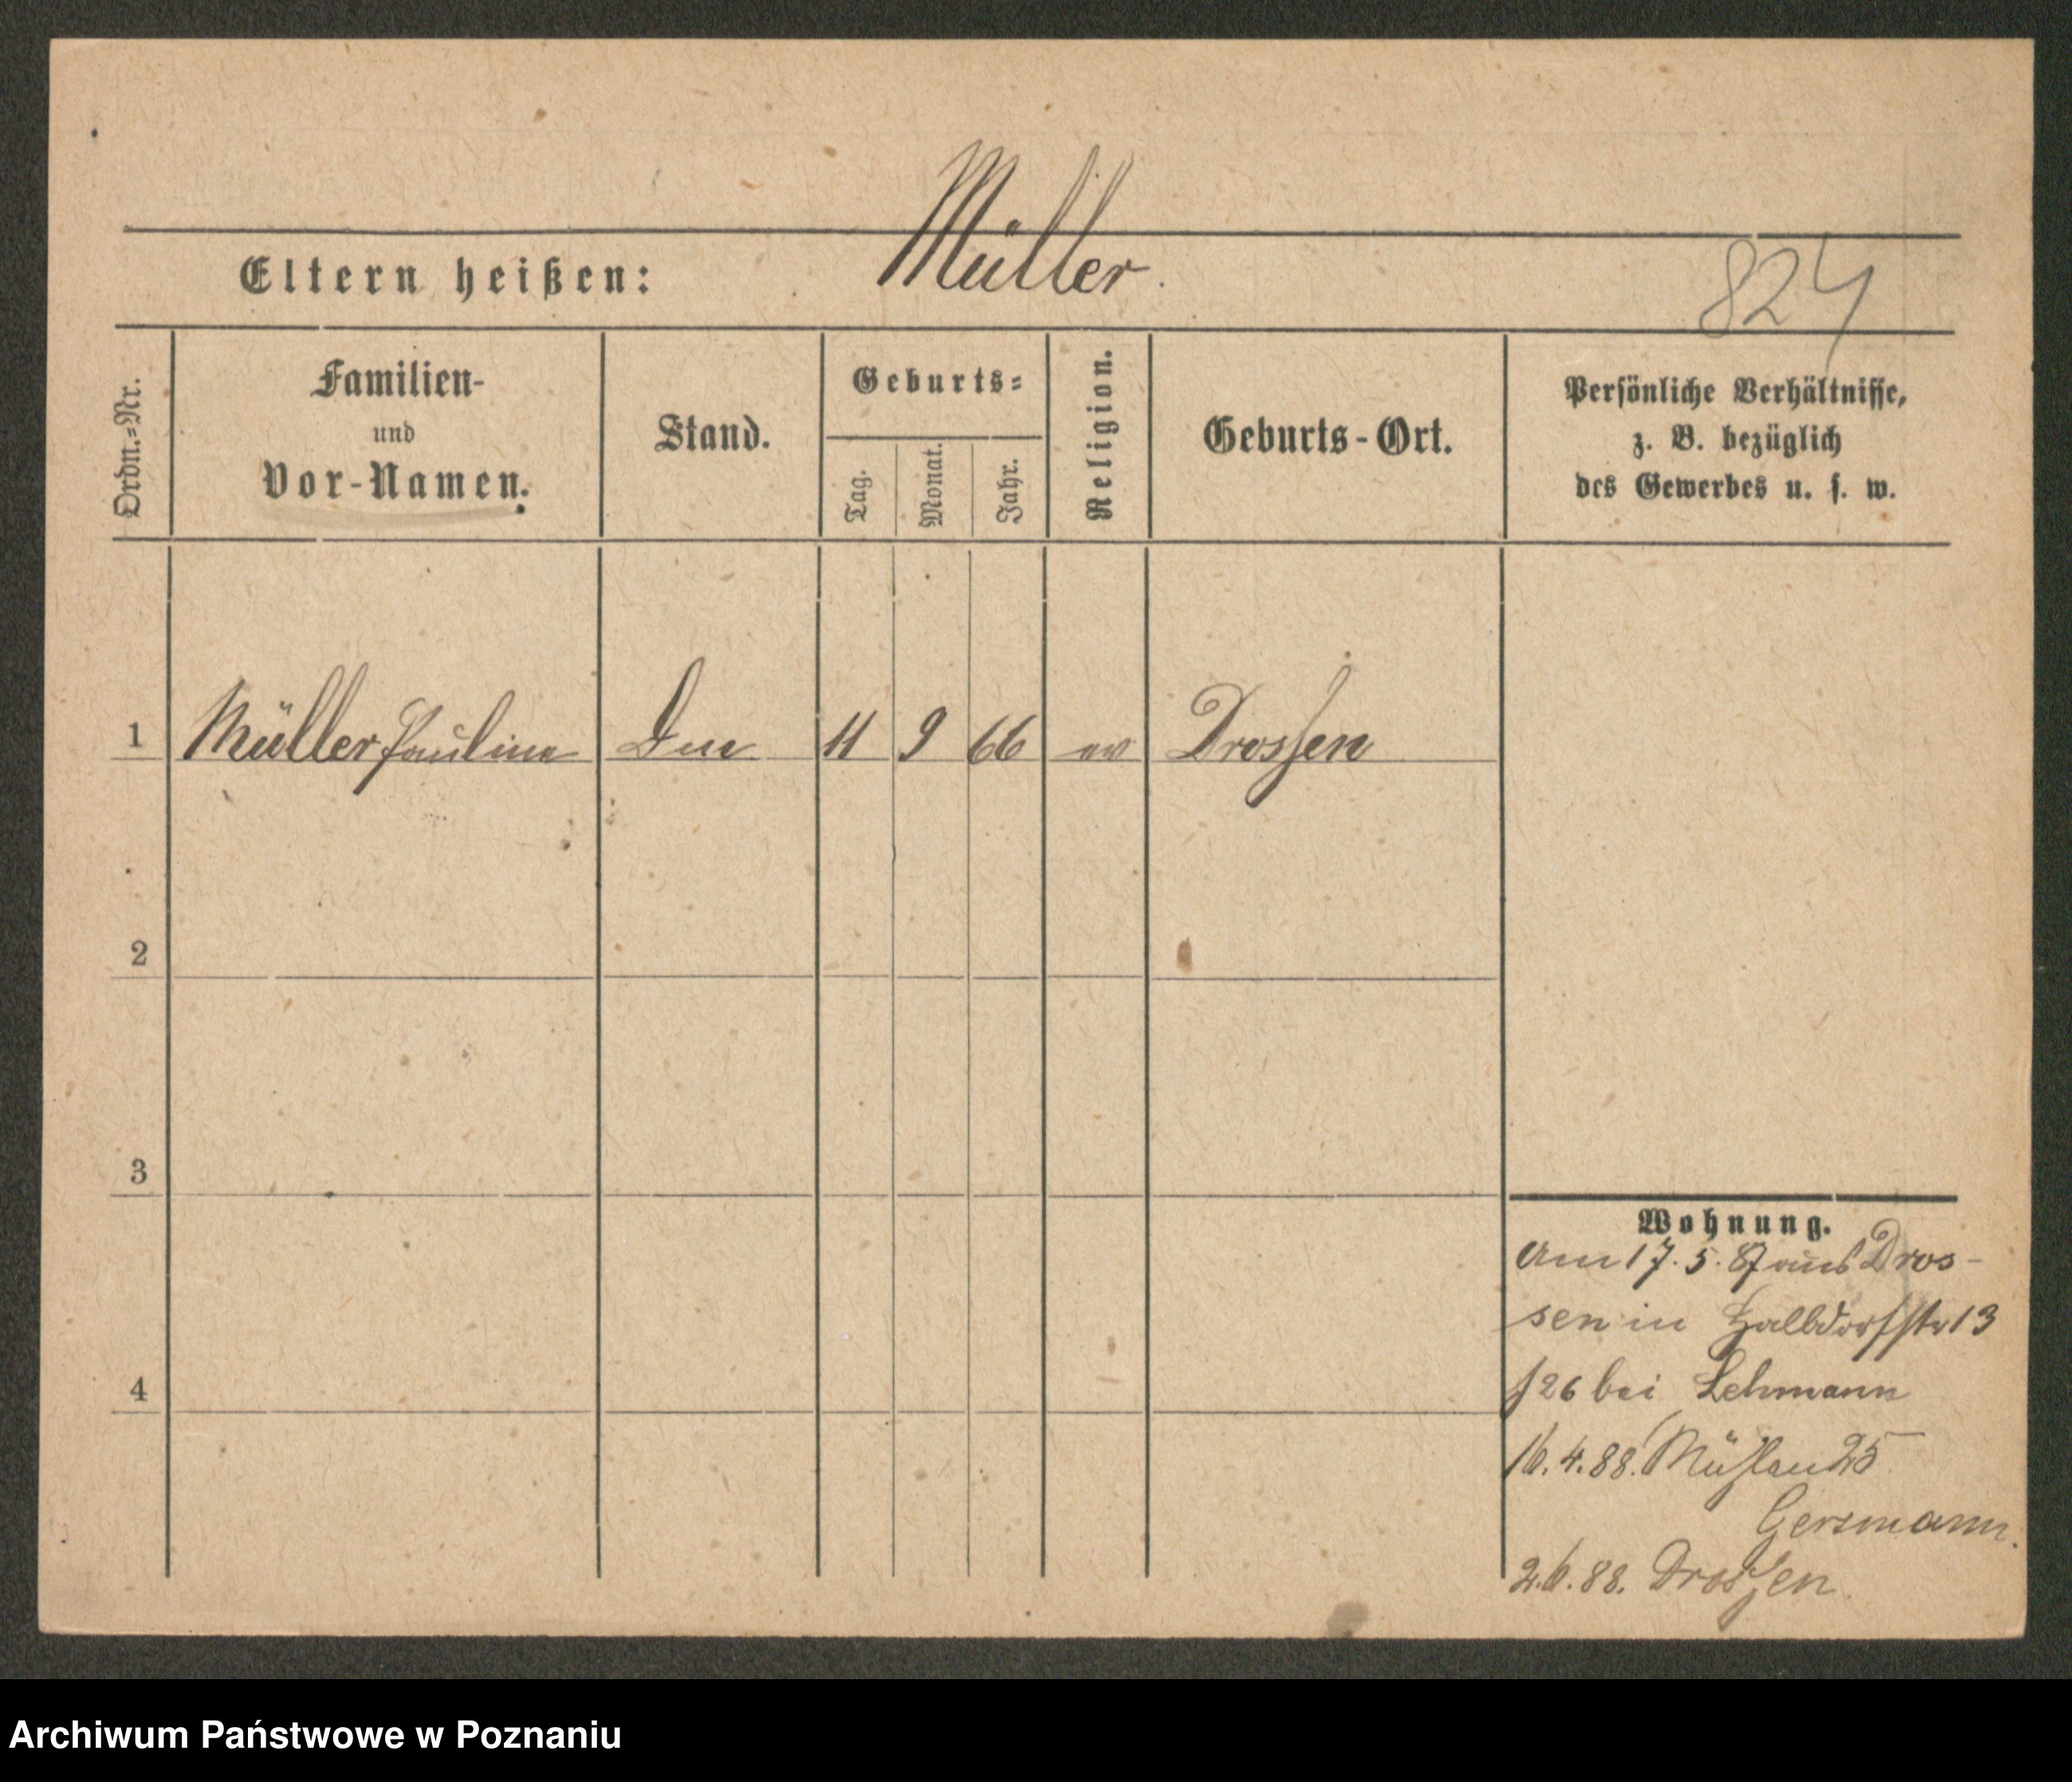 Müller.
Eltern heißen:
824
Ordn.=Nr.
Familien-
und
Vor-Namen.
Stand.
Geburts=
Tag.
Monat.
Jahr.
Religion.
Geburts-Ort.
Persönliche Verhältnisse,
z. B. bezüglich
des Gewerbes u. s. w.
1 Müller Pauline 11 9 66 ev Drossen
2
3
4
Wohnung.
Am 17. 5. 87 aus Dros-
sen in Halbdorfstr 13
26 bei Lehmann
16. 4. 88. Mühlen 25
Gersmann.
2. 6. 88. Drossen.
Archiwum Państwowe w Poznaniu